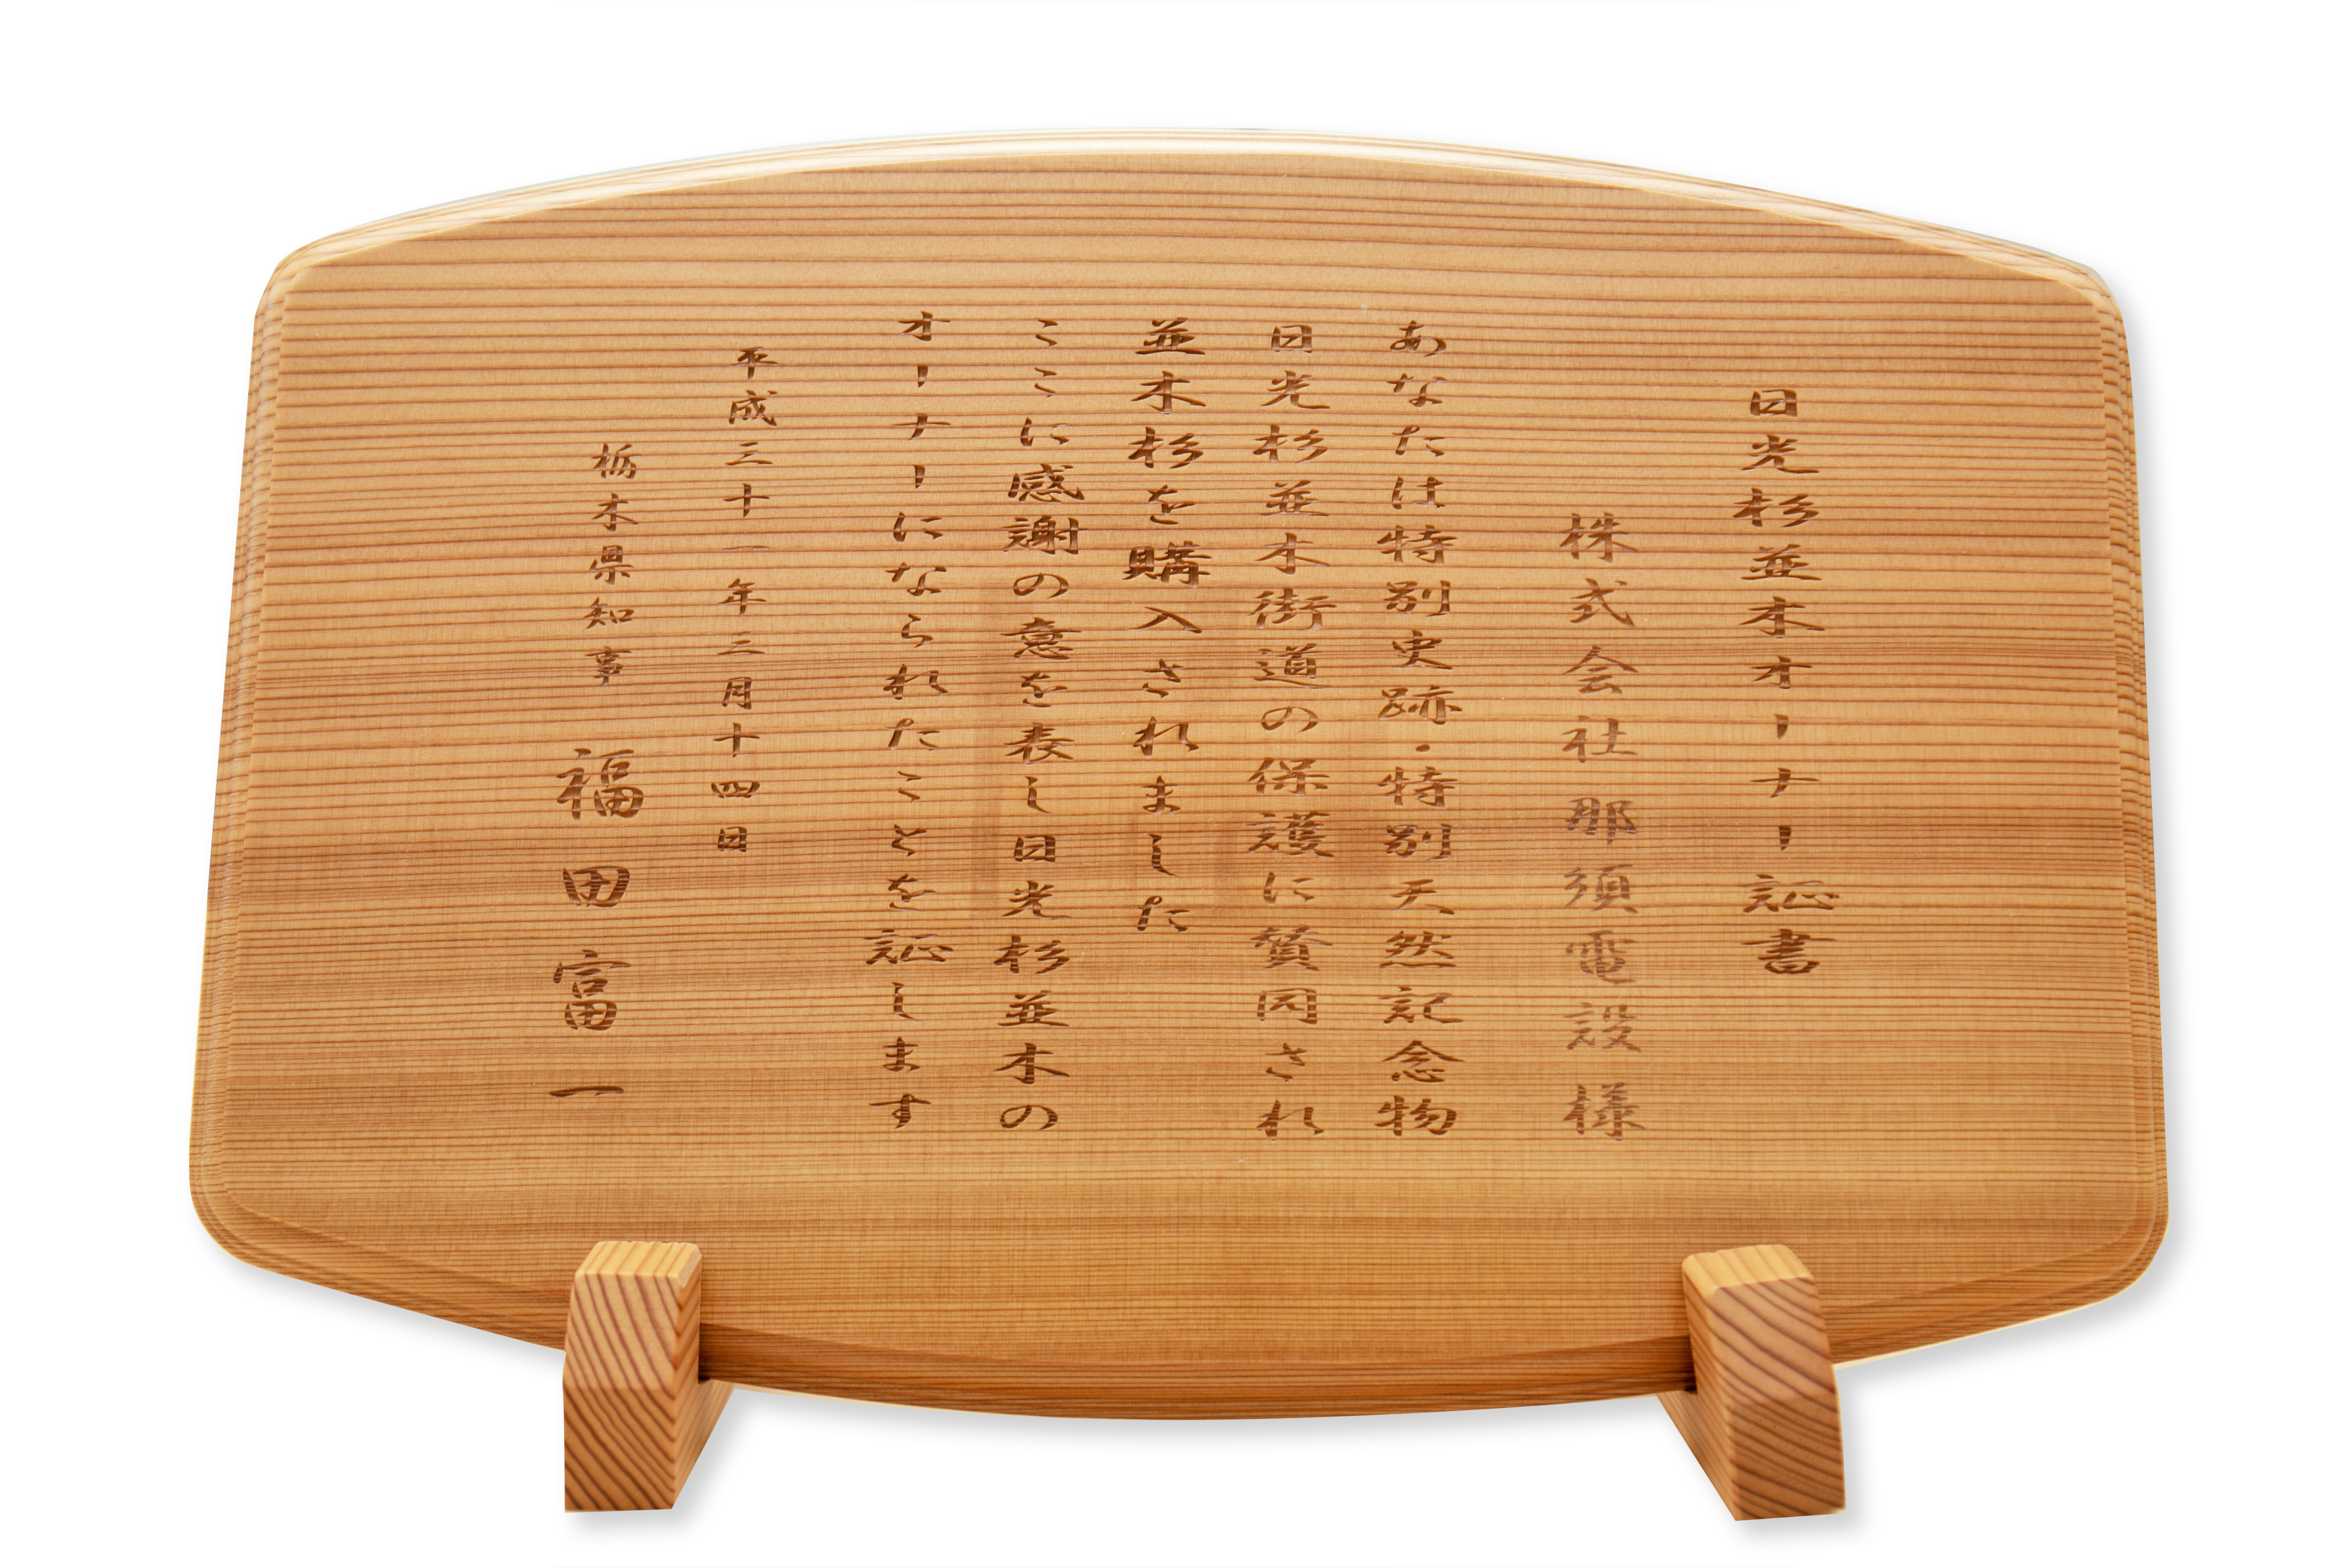 日光杉並木オーナー証書
株式会社那須電設様
あなたは特別史跡・特別天然記念物
日光杉並木街道の保護に賛同され
並木杉を購入されました
ここに感謝の意を表し日光杉並木の
オーナーになられたことを証します
平成三十一年二月十四日
栃木県知事 福田富一